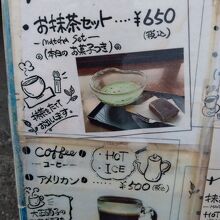 お抹茶セット・・・・¥650
—matcha set— (税込)
(本日のお菓子つき)
抹茶をたてて
お出しします。
Coffee HOT
コーヒー ICE
アメリカン ¥500(税込)